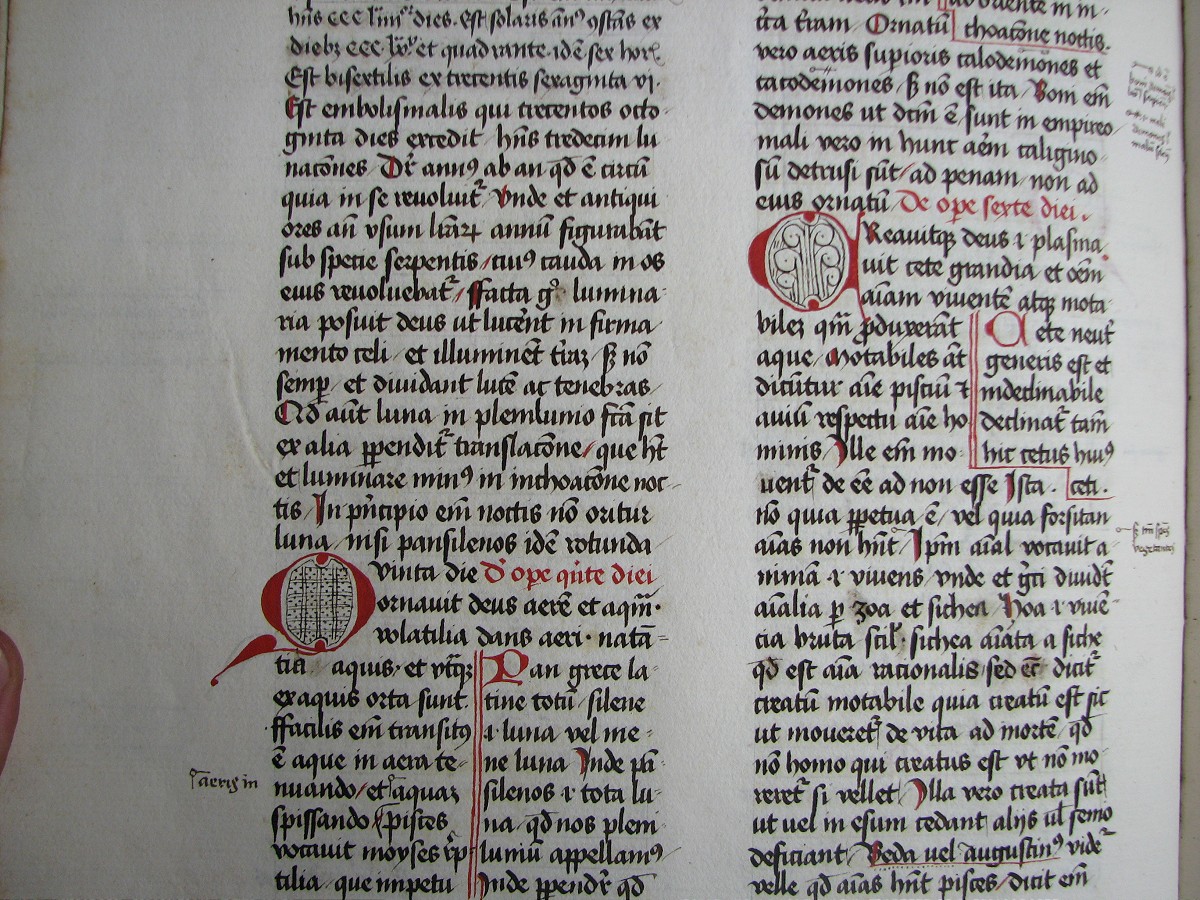 diebȝ ccc lxv et quadrante idē sex hor
Est bisextilis ex trecentis sexaginta vi
Est embolismalis qui trecentos octo
ginta dies excedit hñs tredecim lu
nacōnes Dr̄ annꝰ ab an qd̄ ē circū
quia in se reuoluit᷑ vnde et antiqui
ores an̄ vsum lr̄arꝝ annū figurabāt
sub specie serpentis cuiꝰ cauda in os
eius reuoluebat᷑ ffacta gͦ lumina
ria posuit deus ut lucēnt in firma
mento celi et illuminēt t̄ras sꝫ nō
semꝑ et diuidant lucē ac tenebras
Qd̄ aūt luna in plenilunio fc̄a sit
ex alia ꝑpendit᷑ translacōne que h̄t
et luminare minꝰ in inchoacōne noc
tis In pͥncipio em̄ noctis nō oritur
luna nisi pansilenos idē rotunda
Quinta die D' oꝑe qͥnte diei
ornauit deus aerē et aqm̄
volatilia dans aeri natā
tia aquis et vtqꝫ
ex aquis orta sunt
ffacilis em̄ transitꝰ
ē aque in aera te
nuando et aquas
spissando pisces
vocauit moyses rep
tilia que impetu
aeris in
Pan grece la
tine totū silene
i luna vel me
ne luna Inde pā
silenos i tota lu
na qd̄ nos pleni
luniū appellamꝰ
Inde ꝑpendr̄ qd̄
cta t̄ram Ornatū
vero aeris suꝑioris calodemones et
cacodemones sꝫ nō est ita Boni em̄
demones ut dcm̄ ē sunt in empireo
mali vero in hunc aēm caligino
sū detrusi sūt ad penam non ad
eius ornatū De oꝑe sexte diei
CReauitqꝫ deus i plasma
uit cete grandia et oēm
aīam viuentē atqꝫ mota
bilez qm̄ ꝓduxerāt
aque Motabiles āt
dicūtur aīe pisciū ⁊
auiū respectu aīe ho
minis Ille em̄ mo
uent᷑ de ēē ad non esse Ista
nō quia ꝑpetua ē vel quia forsitan
aīas non hn̄t Ipm̄ aīal vocauit a
nimā i viuens vnde et gͥci diuidt̄
aīalia ꝑ zoa et sichea Zoa i viuē
cia bruta scil' sichea aīata a siche
qd̄ est aīa racionalis sed ec̄ dicit᷑
creatum motabile quia creatū est sic
ut moueret᷑ de vita ad mortē qd̄
nō homo qui creatus est vt nō mo
reret᷑ si vellet Illa vero creata sūt
ut uel in esum cedant alijs ul' senio
deficiant Beda uel augustinꝰ vidr̄
velle qd̄ aīas hn̄t pisces dicit em̄
īchoacōne noctis
Cete neut᷑
generis est et
indeclinabile
declinat᷑ tam̄
hic cetus huiꝰ
ceti